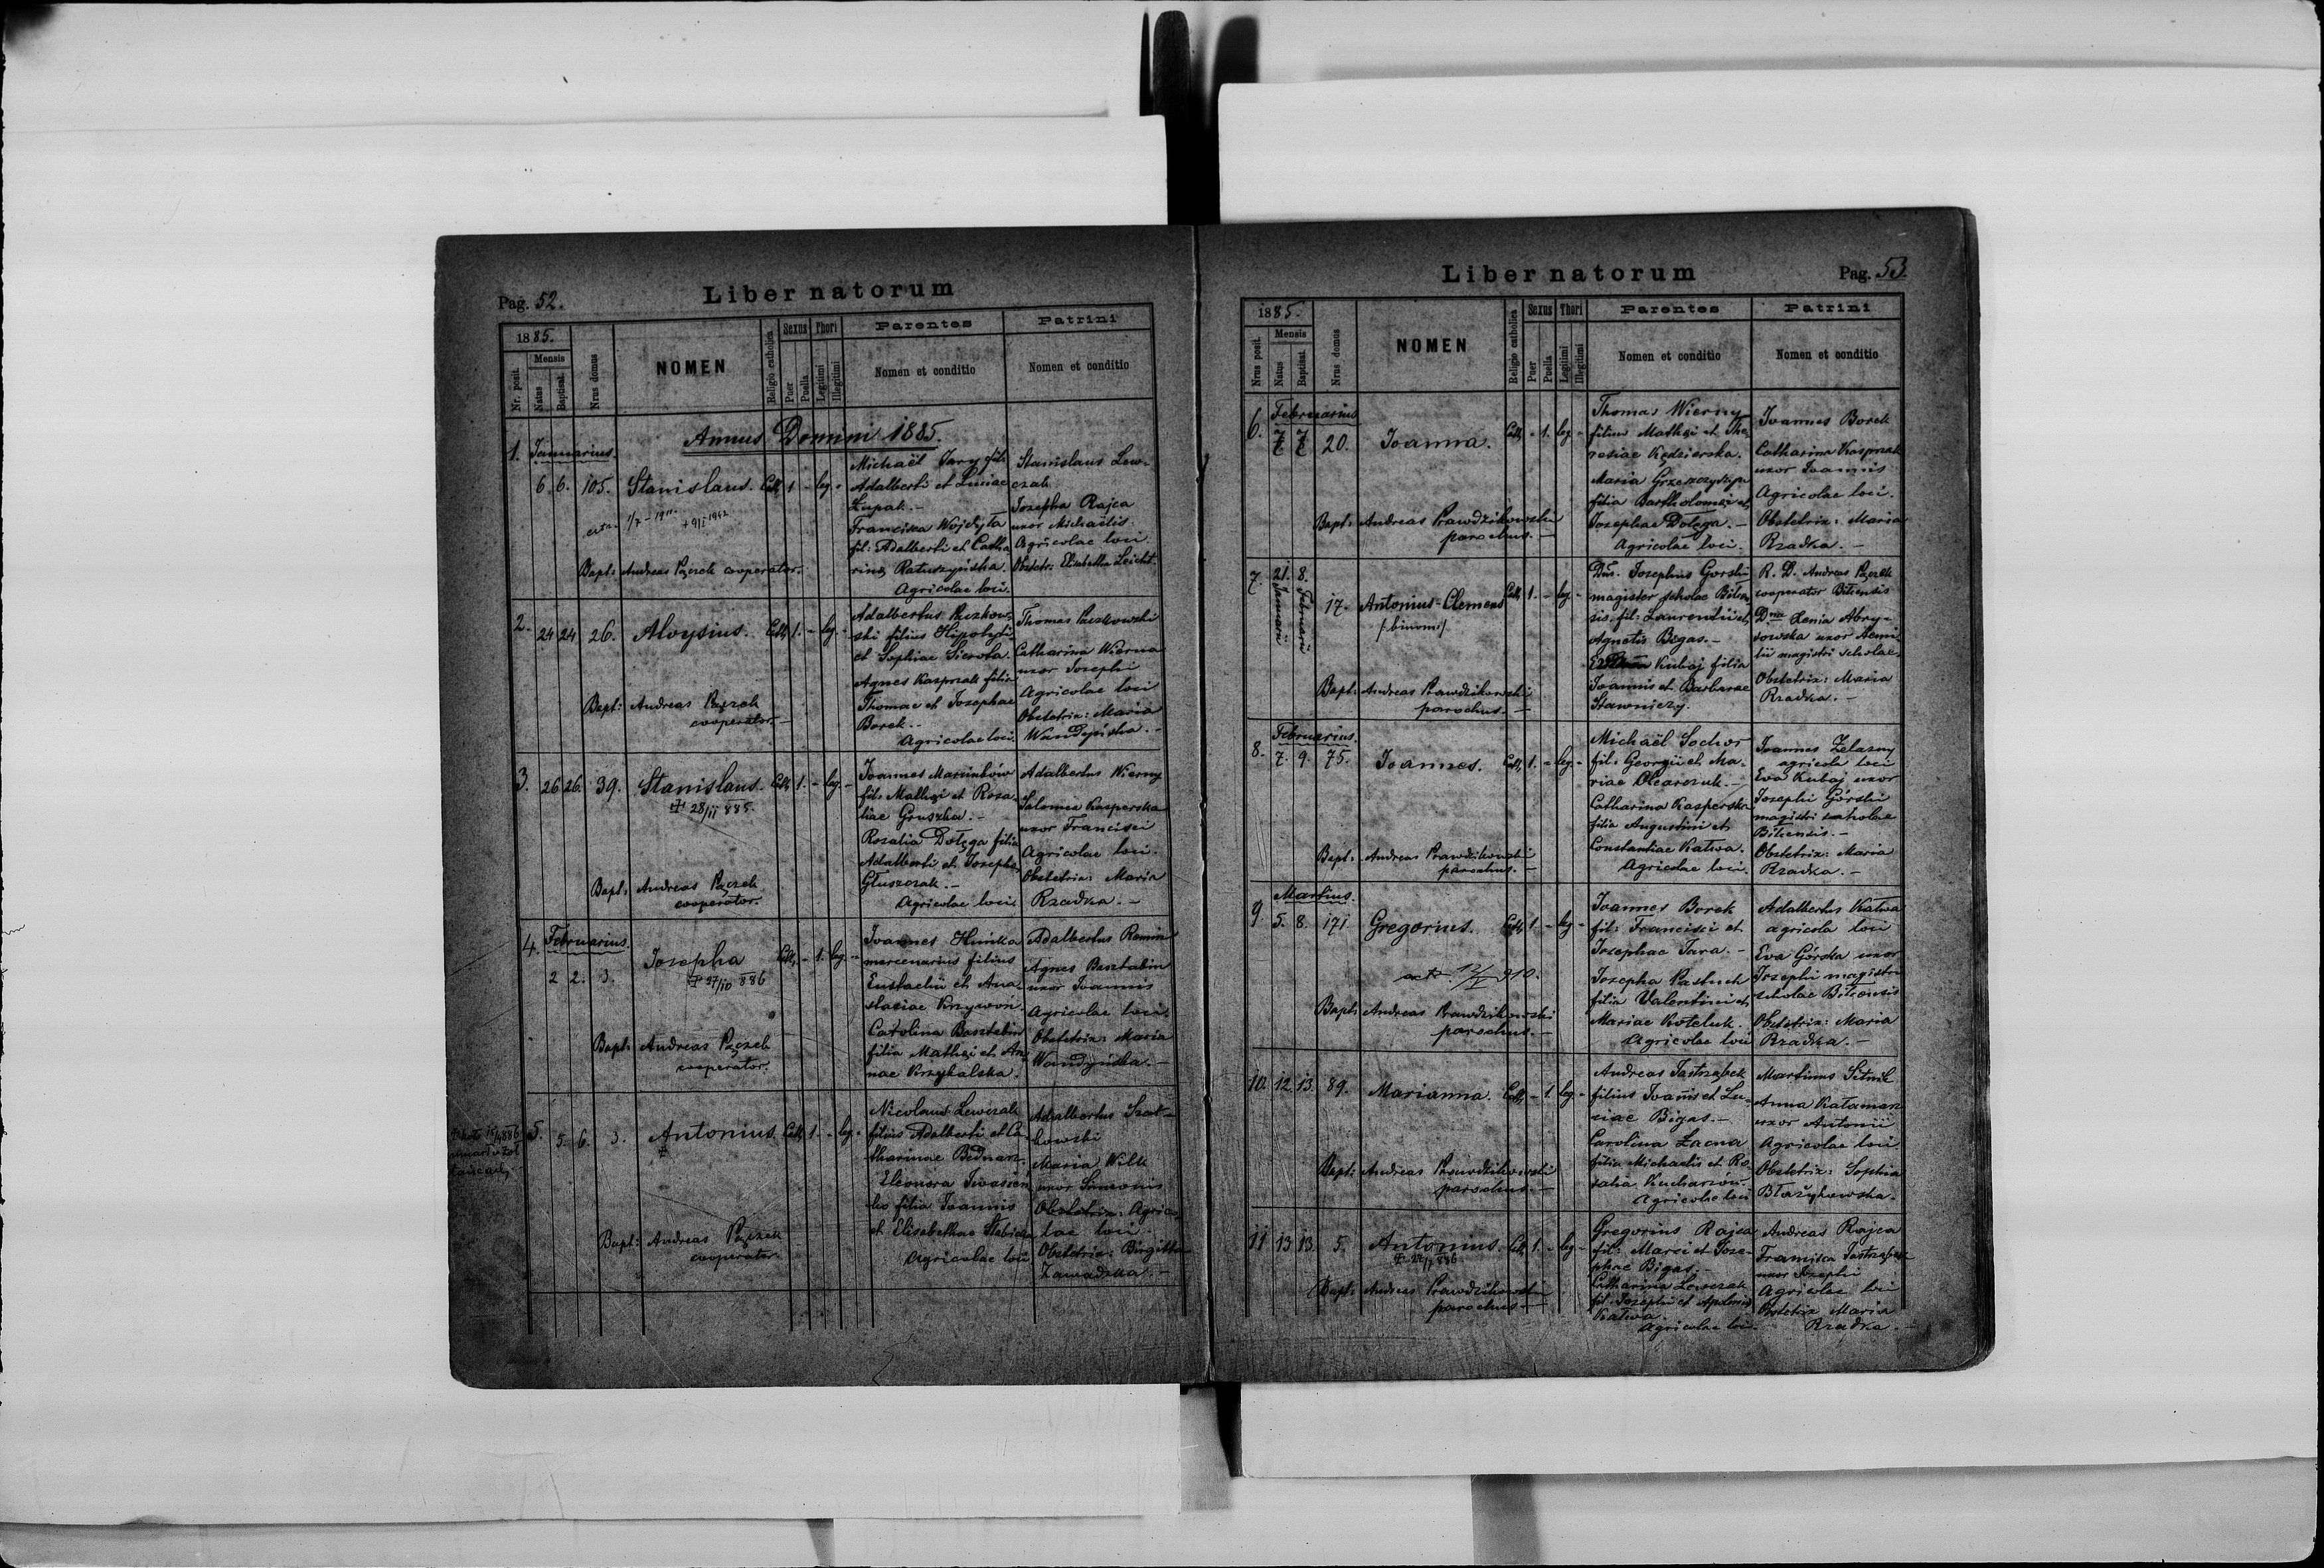 Pag. 52.
Liber natorum
1885.
Nr. posit.
Mensis
Natus
Baptisat.
Nrus domus
NOMEN
Religio catholica
Sexus
Puer
Puella
Thori
Legitimi
Illegitimi
Parentes
Nomen et conditio
Patrini
Nomen et conditio
Annus Domini 1885.
1. Januarius.
6. 6. 105. Stanislaus. Cath. 1 - leg. -
1/7 - 1911
+ 9/I 1942
Bapt: Andreas Pączek cooperator.
Michaël Jary fil:
Adalberti et Luciae
Łupak. -
Francisca Wojdyła
fil: Adalberti et Catha
rina Raturzyńska.
Agricolae loci.
Stanislaus Lew-
czak
Josepha Rajca
uxor Michaëlis
Agricolae loci.
Obstetr: Elisabetha Leicht.
2. 24 24 26. Aloysius. Cath. 1. - leg. -
Bapt: Andreas Pączek
cooperator. -
Adalbertus Paczkow-
ski filius Hipolyti
et Sophiae Sierota.
Agnes Kasprzak filia
Thomae et Josephae
Borek. -
Agricolae loci.
Thomas Paczkowski
Catharina Wierna
uxor Josephi
Agricolae loci
Obstetrix: Maria
Wandyńska. -
3. 26 26. 39. Stanislaus. Cath. 1. - leg. -
28/II 885.
Bapt: Andreas Pączek
cooperator.
Joannes Marcinków
fil: Mathaei et Rosa-
liae Gruszka. -
Rozalia Dołęga filia
Adalberti et Josepha
Głuszczak. -
Agricolae loci.
Adalbertus Wierny
Salomea Kasperska
uxor Francisci
Agricolae loci.
Obstetrix: Maria
Rzadka. -
4. Februarius.
2 2. 3. Josepha Cath. - 1. leg. -
27/10 886
Bapt: Andreas Pączek
cooperator.
Joannes Hućka
mercenarius filius
Eustachii et Ana-
stasiae Krzywoń.
Carolina Basztabin
filia Mathaei et An
nae Krzykalska.
Adalbertus Romin
Agnes Basztabin
uxor Joannis
Agricolae loci.
Obstetrix: Maria
Wandyńska. -
5. 5. 6. 3. Antonius. Cath. 1. - leg. -
Bapt: Andreas Pączek
cooperator.
Nicolaus Lewczak
filius Adalberti et Ca-
tharinae Bednarz.
Eleonora Iwasien-
ko filia Joannis
et Elisabethae
Agricolae loci
Adalbertus Szat-
kowski
Maria Wilk
uxor Simonis
Obstetrix: Agrico
lae loci
Obstetrix: Birgitta
Zawadzka. -
Liber natorum
Pag. 53.
1885.
Nrus posit.
Mensis
Natus
Baptisat.
Nrus domus
NOMEN
Religio catholica
Sexus
Puer
Puella
Thori
Legitimi
Illegitimi
Parentes
Nomen et conditio
Patrini
Nomen et conditio
6. Februarius
7 7 20. Joanna. Cath. - 1. leg. -
Bapt: Andreas Prawdzikowski
parochus. -
Thomas Wierny
filius Mathaei et The
resiae Kędzierska.
Maria Grzeszczyszyn
filia Bartholomaei et
Josephae Dołęga. -
Agricolae loci.
Joannes Borek
Catharina Kasprzak
uxor Joannis
Agricolae loci.
Obstetrix: Maria
Rzadka. -
7. 21. Januarii 8. Februarii 17. Antonius-Clemens Cath. 1. - leg. -
/binomi/
Bapt: Andreas Prawdzikowski
parochus. -
Dus. Josephus Gorski
magister scholae Biłcen
sis, fil: Laurentii et
Agnetis Bigas. -
Kubaj filia
Joannis et Barbarae
Stawniczy.
R. D. Andreas Pączek
cooperator Biłcensis
Dna Xenia Abry-
sowska uxor Aemi
lii magistri scholae.
Obstetrix: Maria
Rzadka. -
8. Februarius.
7. 9. 75. Joannes. Cath. 1. - leg. -
Bapt: Andreas Prawdzikowski
parochus. -
Michaël Sochor
fil: Georgii et Ma-
riae Olearczuk. -
Catharina Kasperska
filia Augustini et
Constantiae Katwa.
Agricolae loci.
Joannes Żelazny
agricola loci
Eva Kubaj uxor
Josephi Górski
magistri scholae
Biłcensis. -
Obstetrix: Maria
Rzadka. -
9. Martius.
5. 8. 171 Gregorius. Cath. 1. - leg. -
12/V 910.
Bapt: Andreas Prawdzikowski
parochus. -
Joannes Borek
fil: Francisci et
Josephae Jara. -
Josepha Pastuch
filia Valentini et
Mariae Koteluk.
Agricolae loci
Adalbertus Katwa
agricola loci
Eva Górska uxor
Josephi magistri
scholae Biłcensis
Obstetrix: Maria
Rzadka. -
10. 12. 13. 89. Marianna. Cath. - 1. leg. -
Bapt: Andreas Prawdzikowski
parochus. -
Andreas Jastrzębek
filius Joannis et Lu-
ciae Bigas. -
Carolina Łacna
filia Michaelis et Ro
salia Kucharzów.
Agricolae loci
Martinus Sitnik
Anna Kałamarz
uxor Antonii
Agricolae loci
Obstetrix: Sophia
Błażykowska.
11 13 13. 5. Antonius. Cath. 1. - leg. -
886
Bapt: Andreas Prawdzikowski
parochus. -
Gregorius Rajca
fil: Marci et Jose-
phae Bigas. -
Catharina Lewczak
fil: Josephi et Apoloniae
Katwa.
Agricolae loci.
Andreas Rajca
Franciska Jastrzębek
uxor Josephi
Agricolae loci
Obstetrix Maria
Rzadka. -